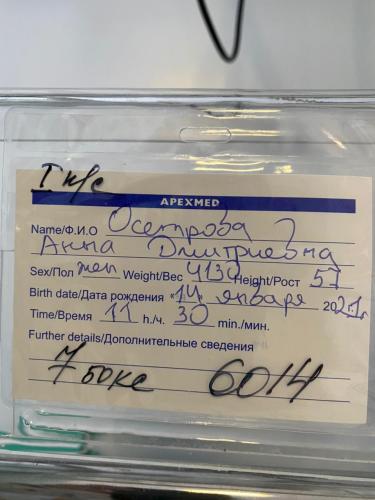 I н/с
APEXMED
Name/Ф.И.О Осетрова
Анна Дмитриевна
Sex/Пол жен Weight/Вес 4130 Height/Рост 57
Birth date/Дата рождения «14» января 2021
Time/Время 11 h./ч. 30 min./мин.
Further details/Дополнительные сведения
7 бокс 6014